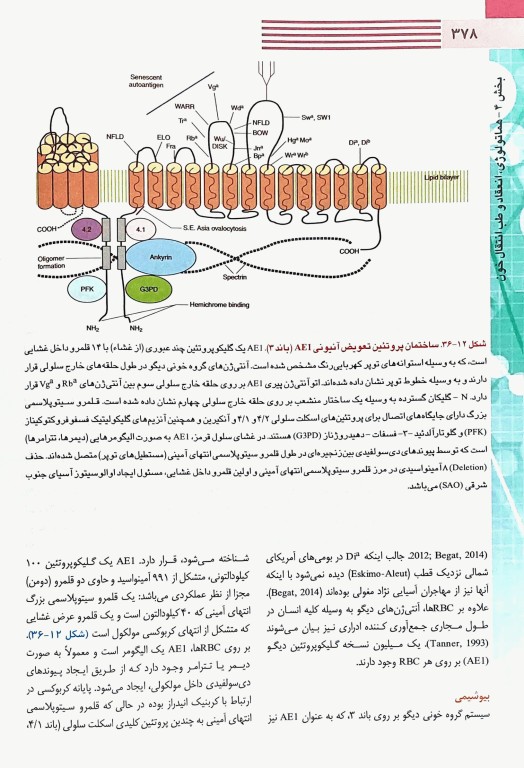 ۳۷۸
بخش ۴ - هماتولوژی، انعقاد و طب انتقال خون
Senescent
autoantigen
Vgᵃ
WARR
Wdᵃ
Trᵃ
NFLD
Swᵃ, SW1
NFLD
ELO
Rbᵃ
Wu/
DISK
BOW
Fra
Jnᵃ
Bpᵃ
Hgᵃ Moᵃ
Wrᵃ Wrᵇ
Diᵃ, Diᵇ
Lipid bilayer
COOH
4.2
4.1
S.E. Asia ovalocytosis
COOH
Oligomer
formation
Ankyrin
Spectrin
PFK
G3PD
Hemichrome binding
NH₂
NH₂
شکل ۱۲-۳۶. ساختمان پروتئین تعویض آنیونی AE1 (باند ۳). AE1 یک گلیکوپروتئین چند عبوری (از غشاء) با ۱۴ قلمرو داخل غشایی
است، که به وسیله استوانه‌های توپر کهربایی‌رنگ مشخص شده است. آنتی‌ژن‌های گروه خونی دیگو در طول حلقه‌های خارج سلولی قرار
دارند و به وسیله خطوط توپر نشان داده شده‌اند. اتو آنتی‌ژن پیری AE1 بر روی حلقه خارج سلولی سوم بین آنتی‌ژن‌های Rbᵃ و Vgᵃ قرار
دارد. N - گلیکان گسترده به وسیله یک ساختار منشعب بر روی حلقه خارج سلولی چهارم نشان داده شده است. قلمرو سیتوپلاسمی
بزرگ دارای جایگاه‌های اتصال برای پروتئین‌های اسکلت سلولی ۴/۲ و ۴/۱ و آنکیرین و همچنین آنزیم‌های گلیکولیتیک فسفوفروکتوکیناز
(PFK) و گلوتارآلدئید -۳- فسفات - دهیدروژناز (G3PD) هستند. در غشای سلول قرمز، AE1 به صورت الیگومرهایی (دیمرها، تترامرها)
است که توسط پیوندهای دی‌سولفیدی بین‌زنجیره‌ای در طول قلمرو سیتوپلاسمی انتهای آمینی (مستطیل‌های توپر) متصل شده‌اند. حذف
(Deletion) ۸ آمینواسیدی در مرز قلمرو سیتوپلاسمی انتهای آمینی و اولین قلمرو داخل غشایی، مسئول ایجاد اوالوسیتوز آسیای جنوب
شرقی (SAO) می‌باشد.
2012; Begat, 2014). جالب اینکه Diᵃ در بومی‌های آمریکای
شمالی نزدیک قطب (Eskimo-Aleut) دیده نمی‌شود با اینکه
آنها نیز از مهاجران آسیایی نژاد مغولی بوده‌اند (Begat, 2014).
علاوه بر RBCها، آنتی‌ژن‌های دیگو به وسیله کلیه انسان در
طول مجاری جمع‌آوری کننده ادراری نیز بیان می‌شوند
(Tanner, 1993). یک میلیون نسخه گلیکوپروتئین دیگو
(AE1) بر روی هر RBC وجود دارند.
بیوشیمی
سیستم گروه خونی دیگو بر روی باند ۳، که به عنوان AE1 نیز
شناخته می‌شود، قرار دارد. AE1 یک گلیکوپروتئین ۱۰۰
کیلودالتونی، متشکل از ۹۹۱ آمینواسید و حاوی دو قلمرو (دومن)
مجزا از نظر عملکردی می‌باشد: یک قلمرو سیتوپلاسمی بزرگ
انتهای آمینی که ۴۰ کیلودالتون است و یک قلمرو عرض غشایی
که متشکل از انتهای کربوکسی مولکول است (شکل ۱۲-۳۶).
بر روی RBCها، AE1 یک الیگومر است و معمولاً به صورت
دیمر یا تترامر وجود دارد که از طریق ایجاد پیوندهای
دی‌سولفیدی داخل مولکولی، ایجاد می‌شود. پایانه کربوکسی در
ارتباط با کربنیک انیدراز بوده در حالی که قلمرو سیتوپلاسمی
انتهای آمینی به چندین پروتئین کلیدی اسکلت سلولی (باند ۴/۱،